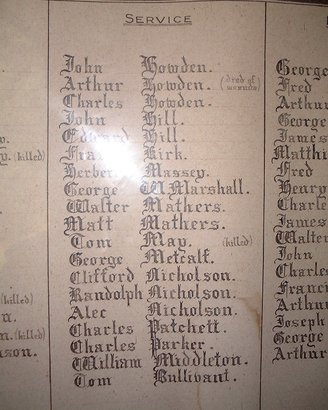 SERVICE
John Howden.
Arthur Howden. (died of wounds)
Charles Howden.
John Hill.
Edward Hill.
Kirk.
Herbert Massey.
George W. Marshall.
Walter Mathers.
Matt Mathers.
Tom May. (killed)
George Metcalf.
Clifford Nicholson.
Randolph Nicholson.
Alec Nicholson.
Charles Patchett.
Charles Parker.
William Middleton.
Tom Bullivant.
(killed)
(killed)
(killed)
George
Fred
Arthur
George
James
Fred
Henry
James
Walter
John
Arthur
Joseph
George
Arthur